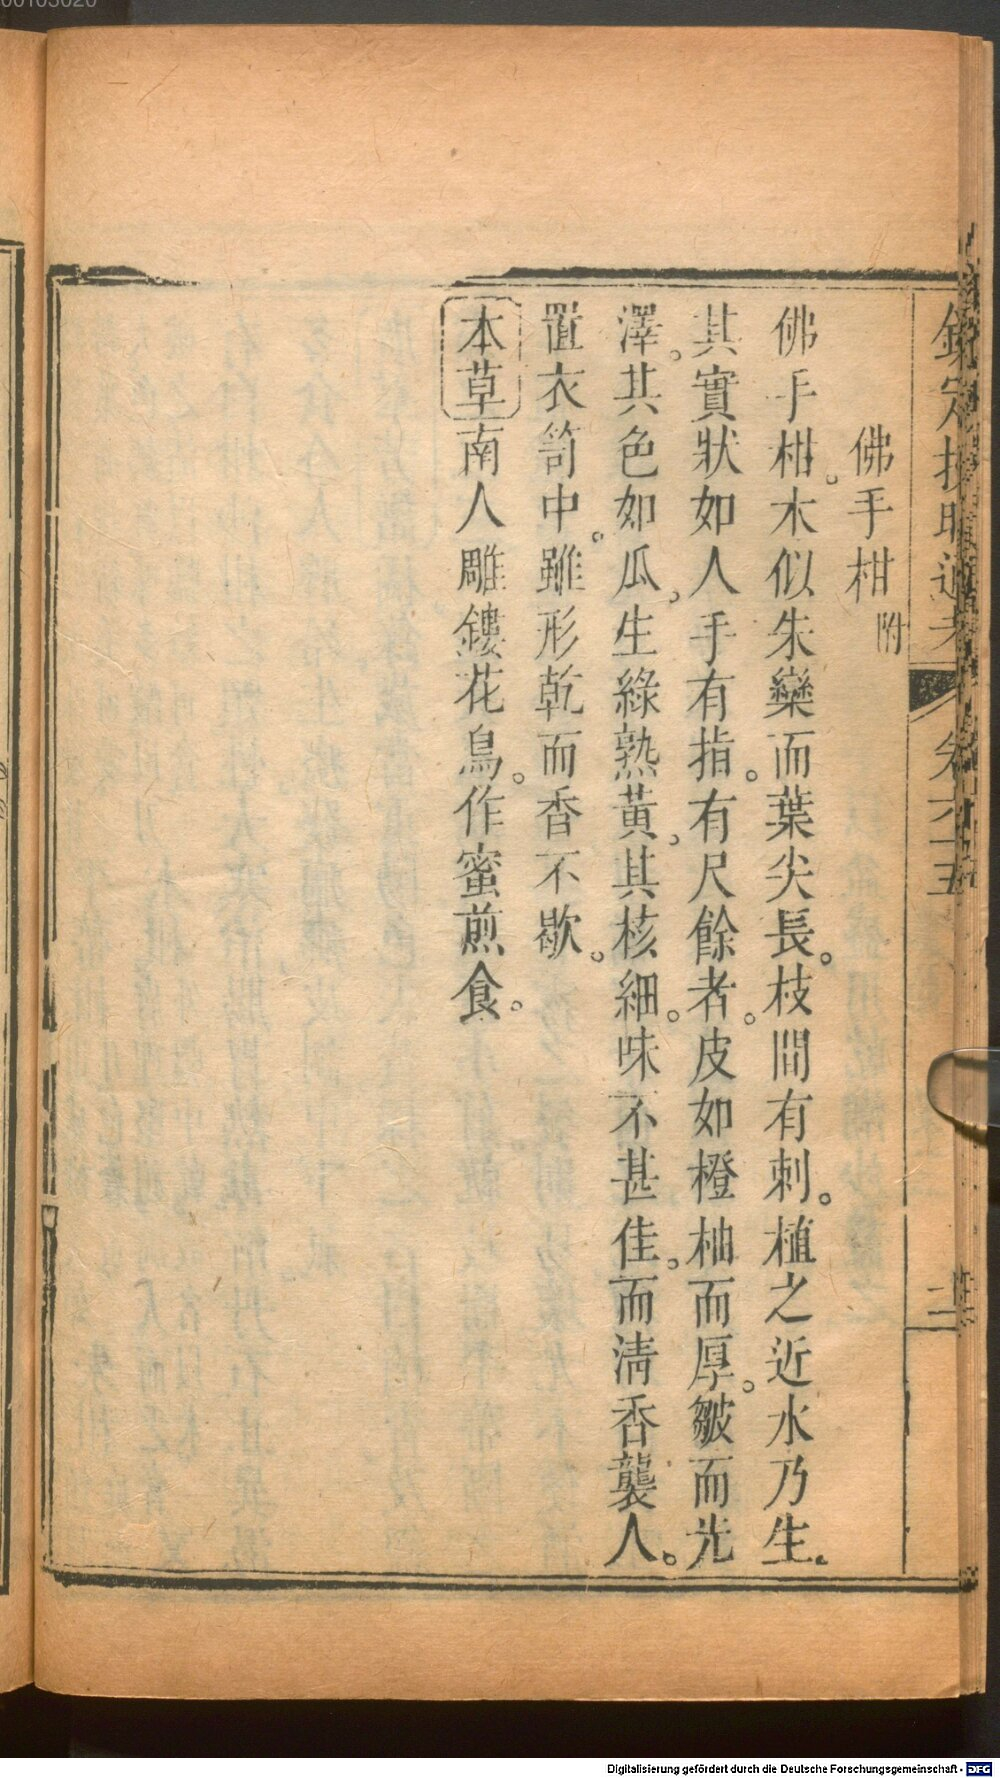 欽定授時通考 卷六十五 二
佛手柑附
佛手柑。木似朱欒而葉尖長。枝間有刺。植之近水乃生。
其實狀如人手有指。有尺餘者。皮如橙柚而厚。皺而光
澤。其色如瓜。生綠熟黃。其核細。味不甚佳。而淸香襲人。
置衣笥中。雖形乾而香不歇。
本草南人雕鏤花鳥。作蜜煎食。
Digitalisierung gefördert durch die Deutsche Forschungsgemeinschaft - DFG